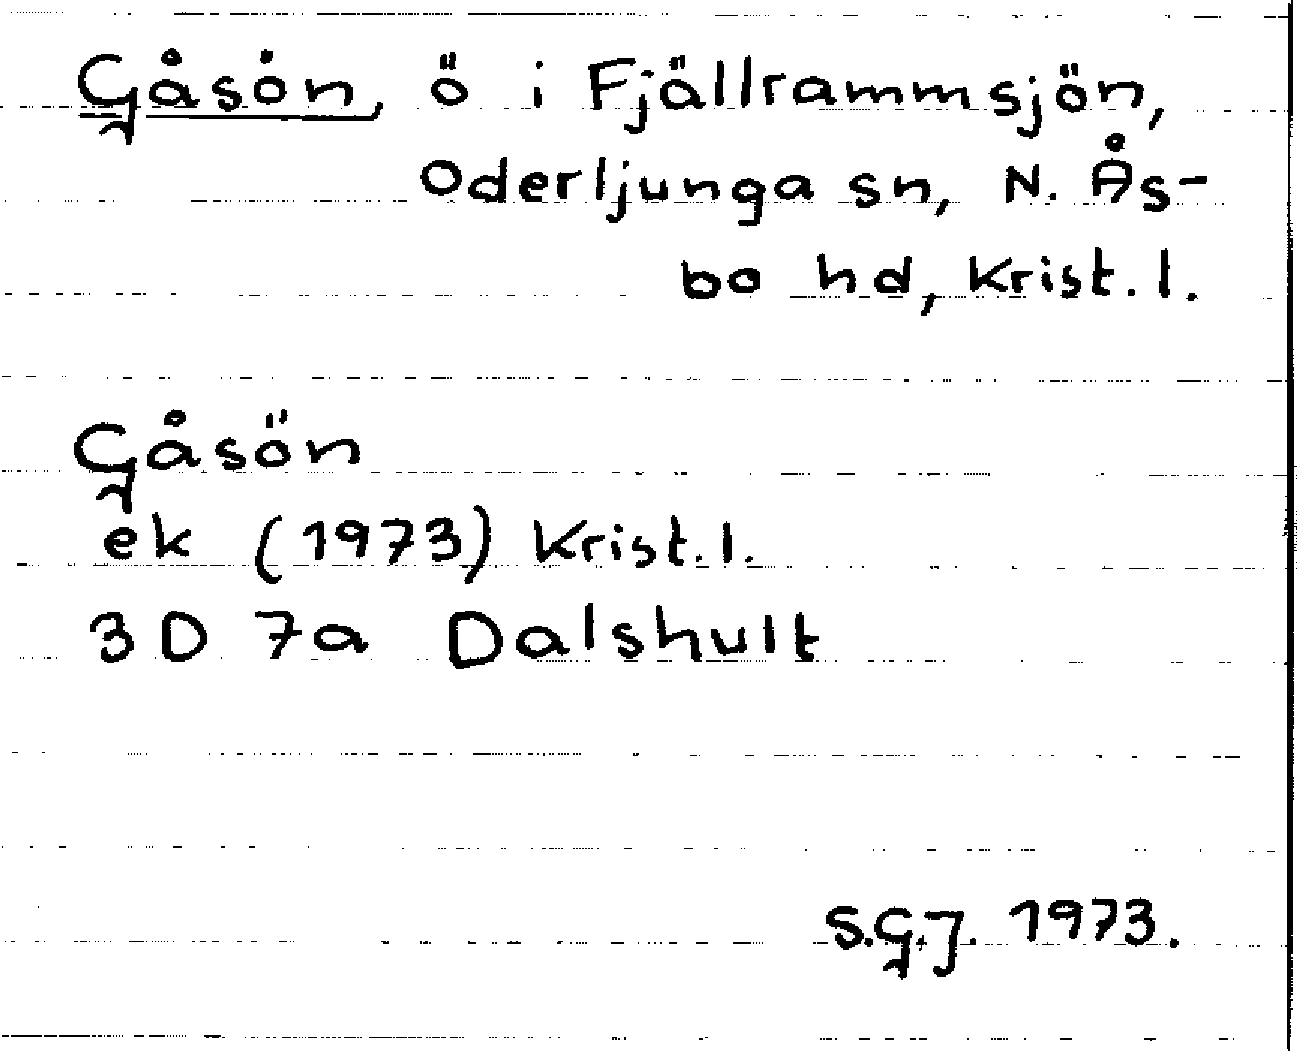 Gåsön, ö i Fjällrammsjön,
Oderljunga sn, N. Ås-
bo hd, Krist. l.
Gåsön
ek (1973) Krist. l.
3D 7a Dalshult
S.G.J. 1973.